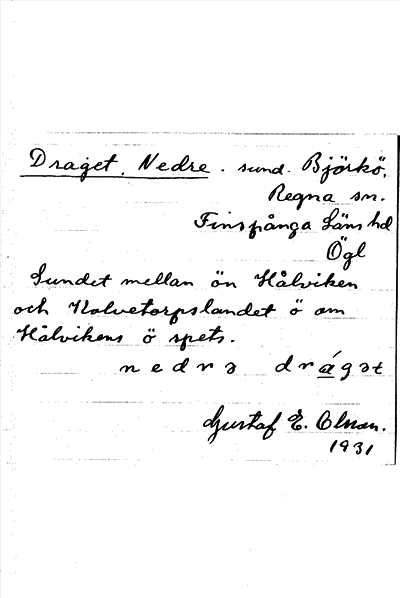 Draget, Nedre. sund. Björkö,
Regna sn.
Finspånga Läns hd
Ögl
Sundet mellan ön Hålviken
och Kolvetorpslandet ö om
Hålvikens ö spets.
nedrə drágət
Gustaf E. Olman.
1931